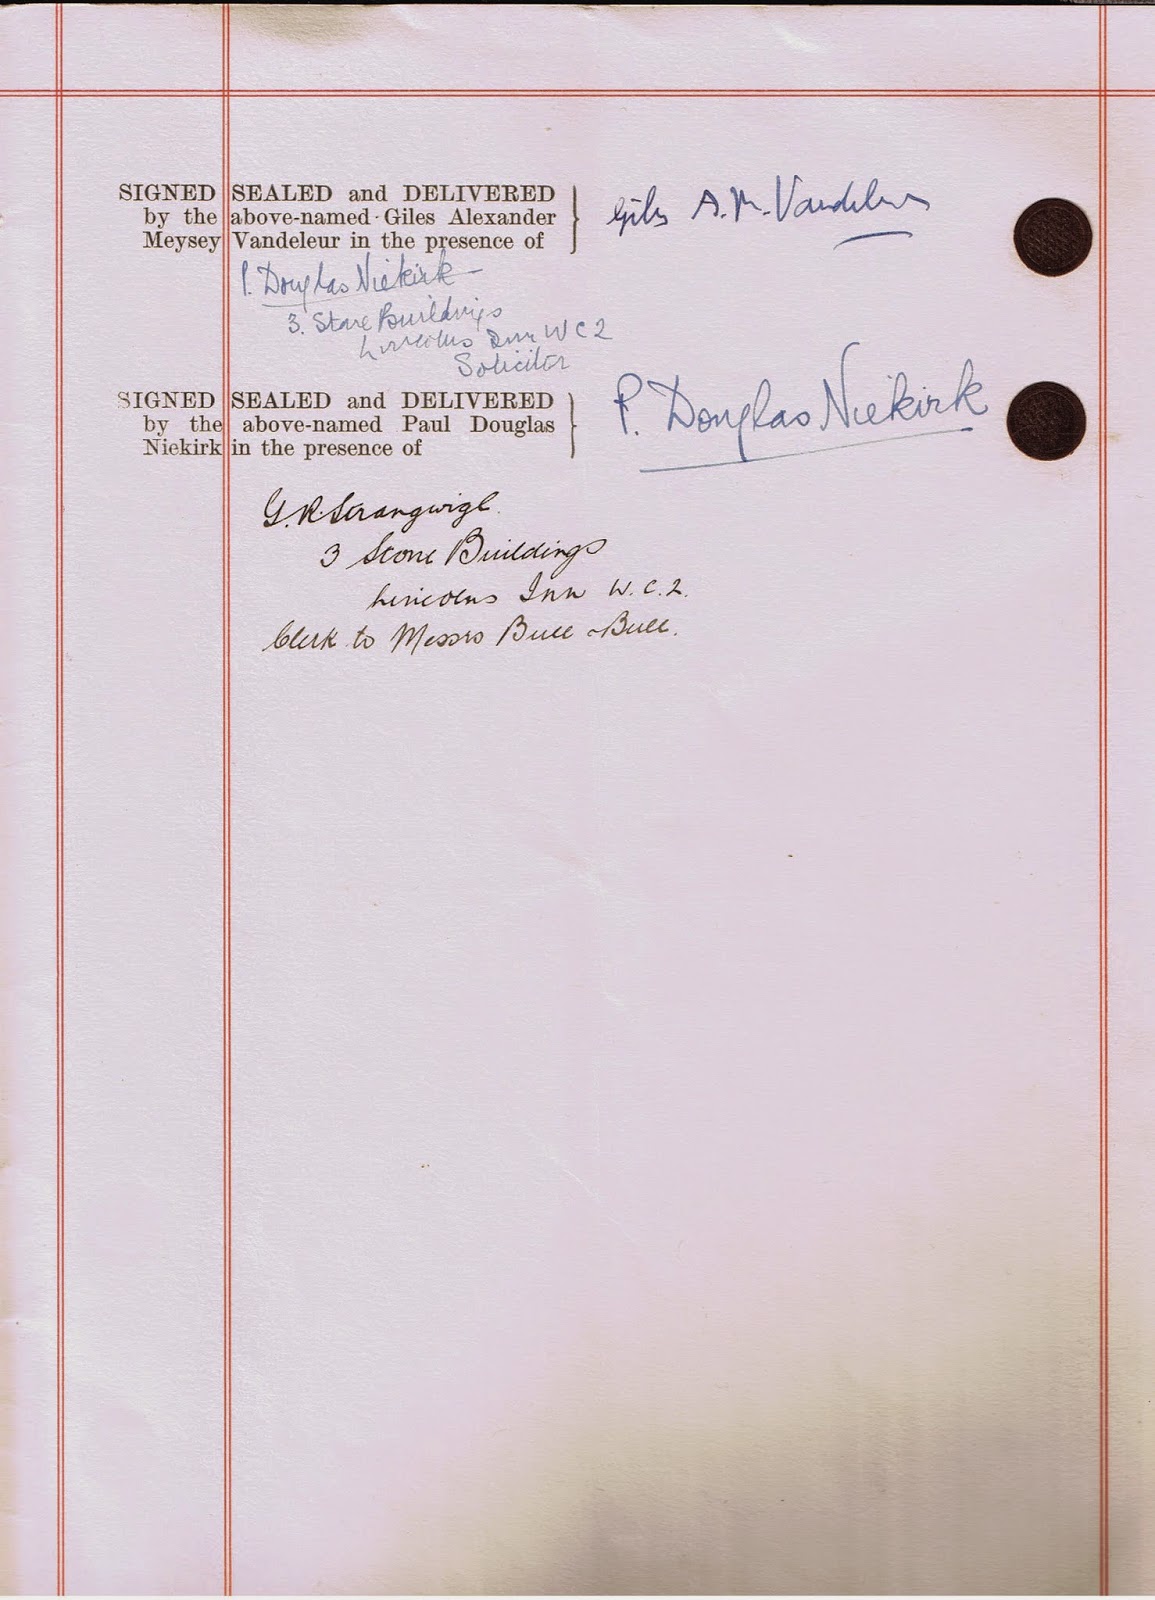 SIGNED SEALED and DELIVERED
by the above-named Giles Alexander
Meysey Vandeleur in the presence of
Giles A. M. Vandeleur
P. Douglas Niekirk
3. Stone Buildings
Lincolns Inn WC2
Solicitor
SIGNED SEALED and DELIVERED
by the above-named Paul Douglas
Niekirk in the presence of
P. Douglas Niekirk
G. R.
3 Stone Buildings
Lincolns Inn W.C.2.
Clerk to Messrs Bull & Bull.